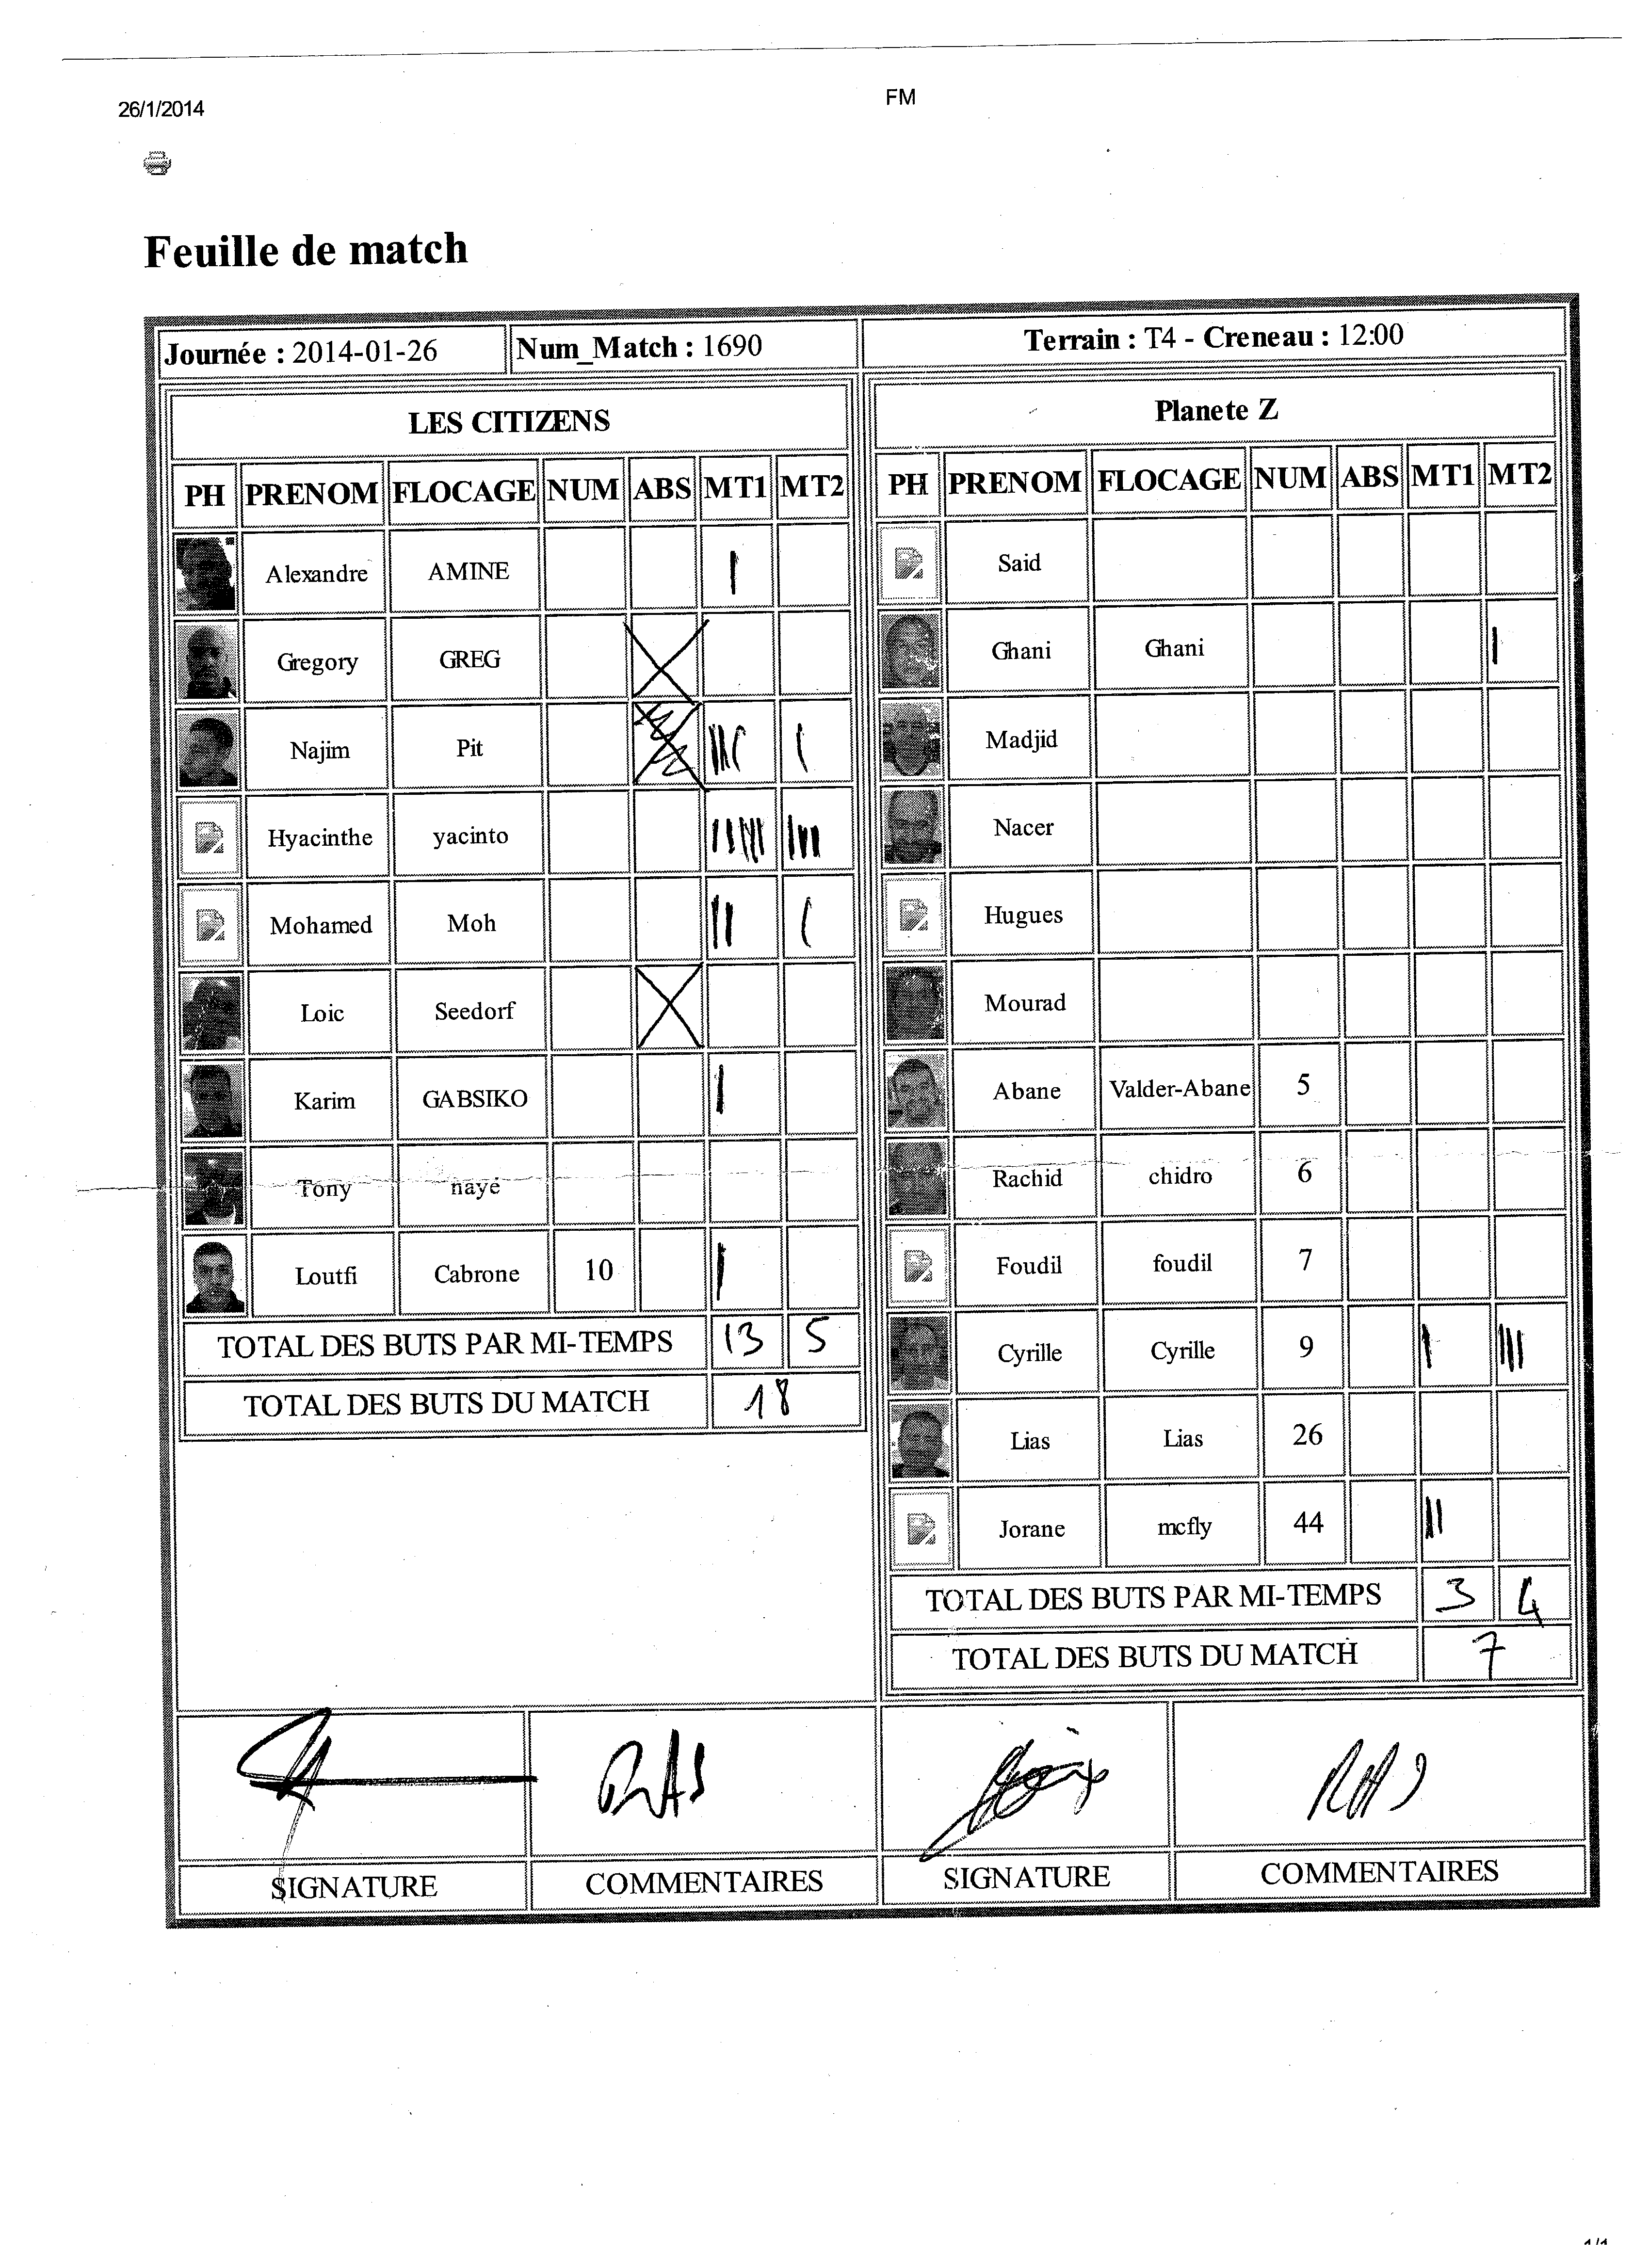 26/1/2014
FM
Feuille de match
Journée : 2014-01-26
Num_Match : 1690
Terrain : T4 - Creneau : 12:00
LES CITIZENS
PH PRENOM FLOCAGE NUM ABS MT1 MT2
Alexandre AMINE
Gregory GREG
Najim Pit
Hyacinthe yacinto
Mohamed Moh
Loic Seedorf
Karim GABSIKO
Tony nayé
Loutfi Cabrone 10
TOTAL DES BUTS PAR MI-TEMPS 13 5
TOTAL DES BUTS DU MATCH 18
Planete Z
PH PRENOM FLOCAGE NUM ABS MT1 MT2
Said
Ghani Ghani
Madjid
Nacer
Hugues
Mourad
Abane Valder-Abane 5
Rachid chidro 6
Foudil foudil 7
Cyrille Cyrille 9
Lias Lias 26
Jorane mcfly 44
TOTAL DES BUTS PAR MI-TEMPS 3 4
TOTAL DES BUTS DU MATCH 7
RAS
RAS
SIGNATURE
COMMENTAIRES
SIGNATURE
COMMENTAIRES